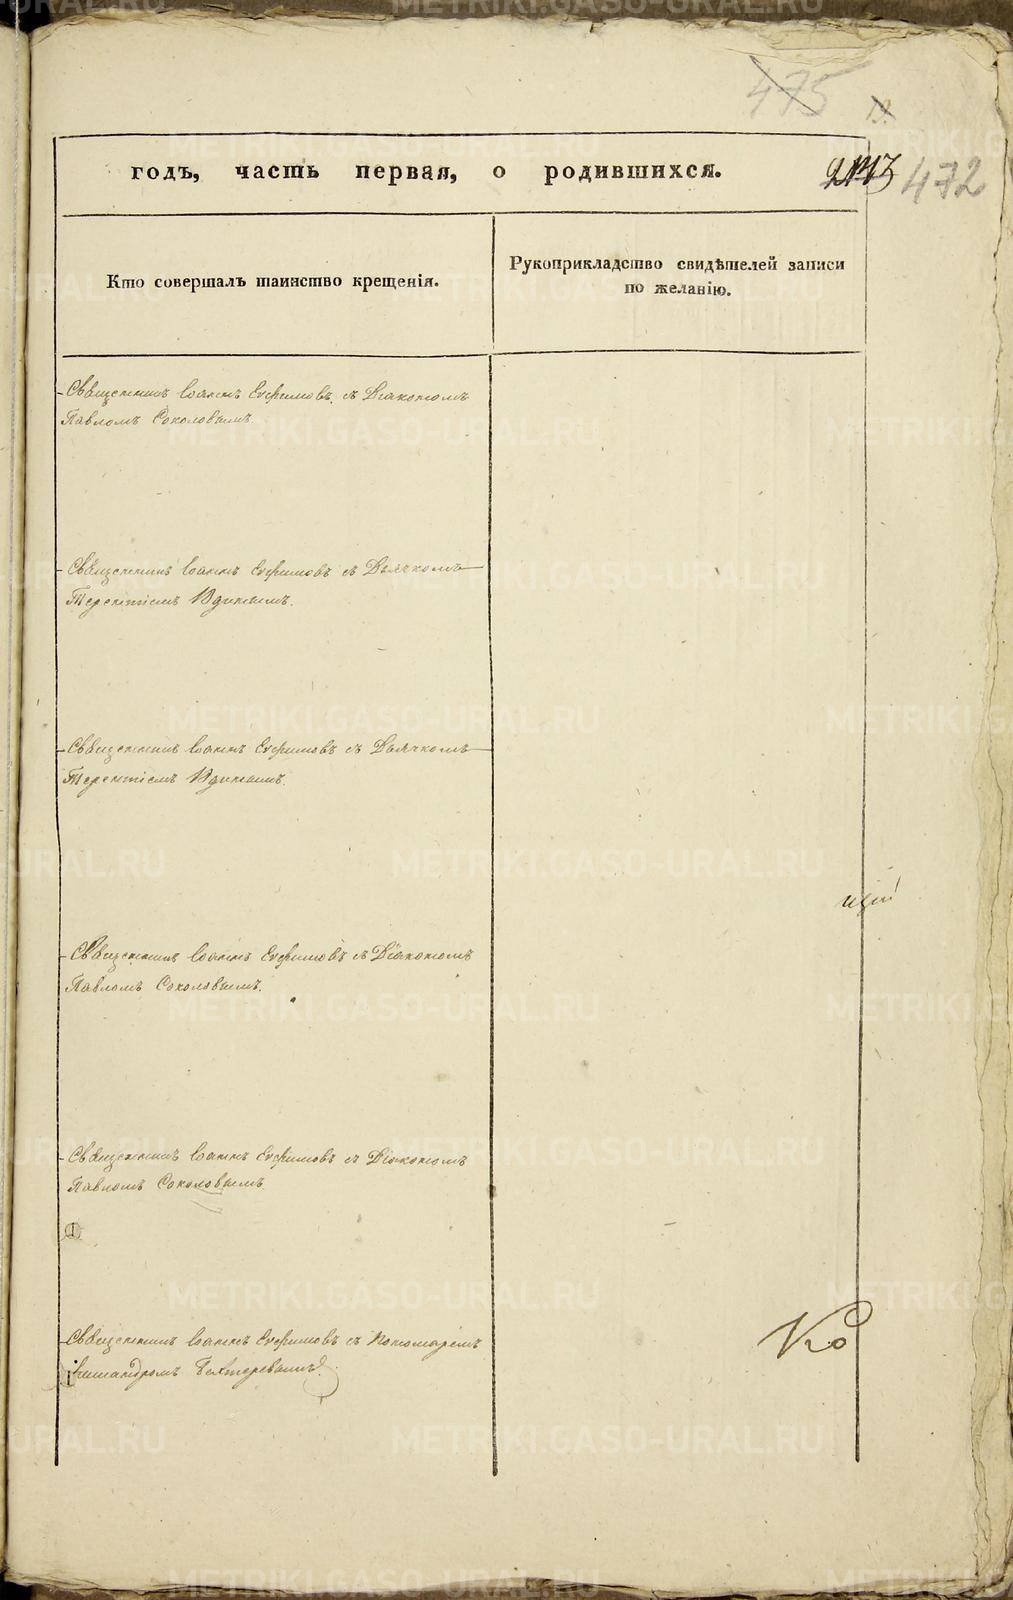 475
472
годъ, часть первая, о родившихся.
Кто совершалъ таинство крещенія.
Рукоприкладство свидѣтелей записи
по желанію.
Священникъ Іоаннъ Ефимовъ съ Діакономъ
Павломъ Соколовымъ.
Священникъ Іоаннъ Ефимовъ съ Дьячкомъ
Терентіемъ
Священникъ Іоаннъ Ефимовъ съ Дьячкомъ
Терентіемъ
Священникъ Іоаннъ Ефимовъ съ Діакономъ
Павломъ Соколовымъ.
Священникъ Іоаннъ Ефимовъ съ Діакономъ
Павломъ Соколовымъ
Священникъ Іоаннъ Ефимовъ съ Пономаремъ
METRIKI.GASO-URAL.RU